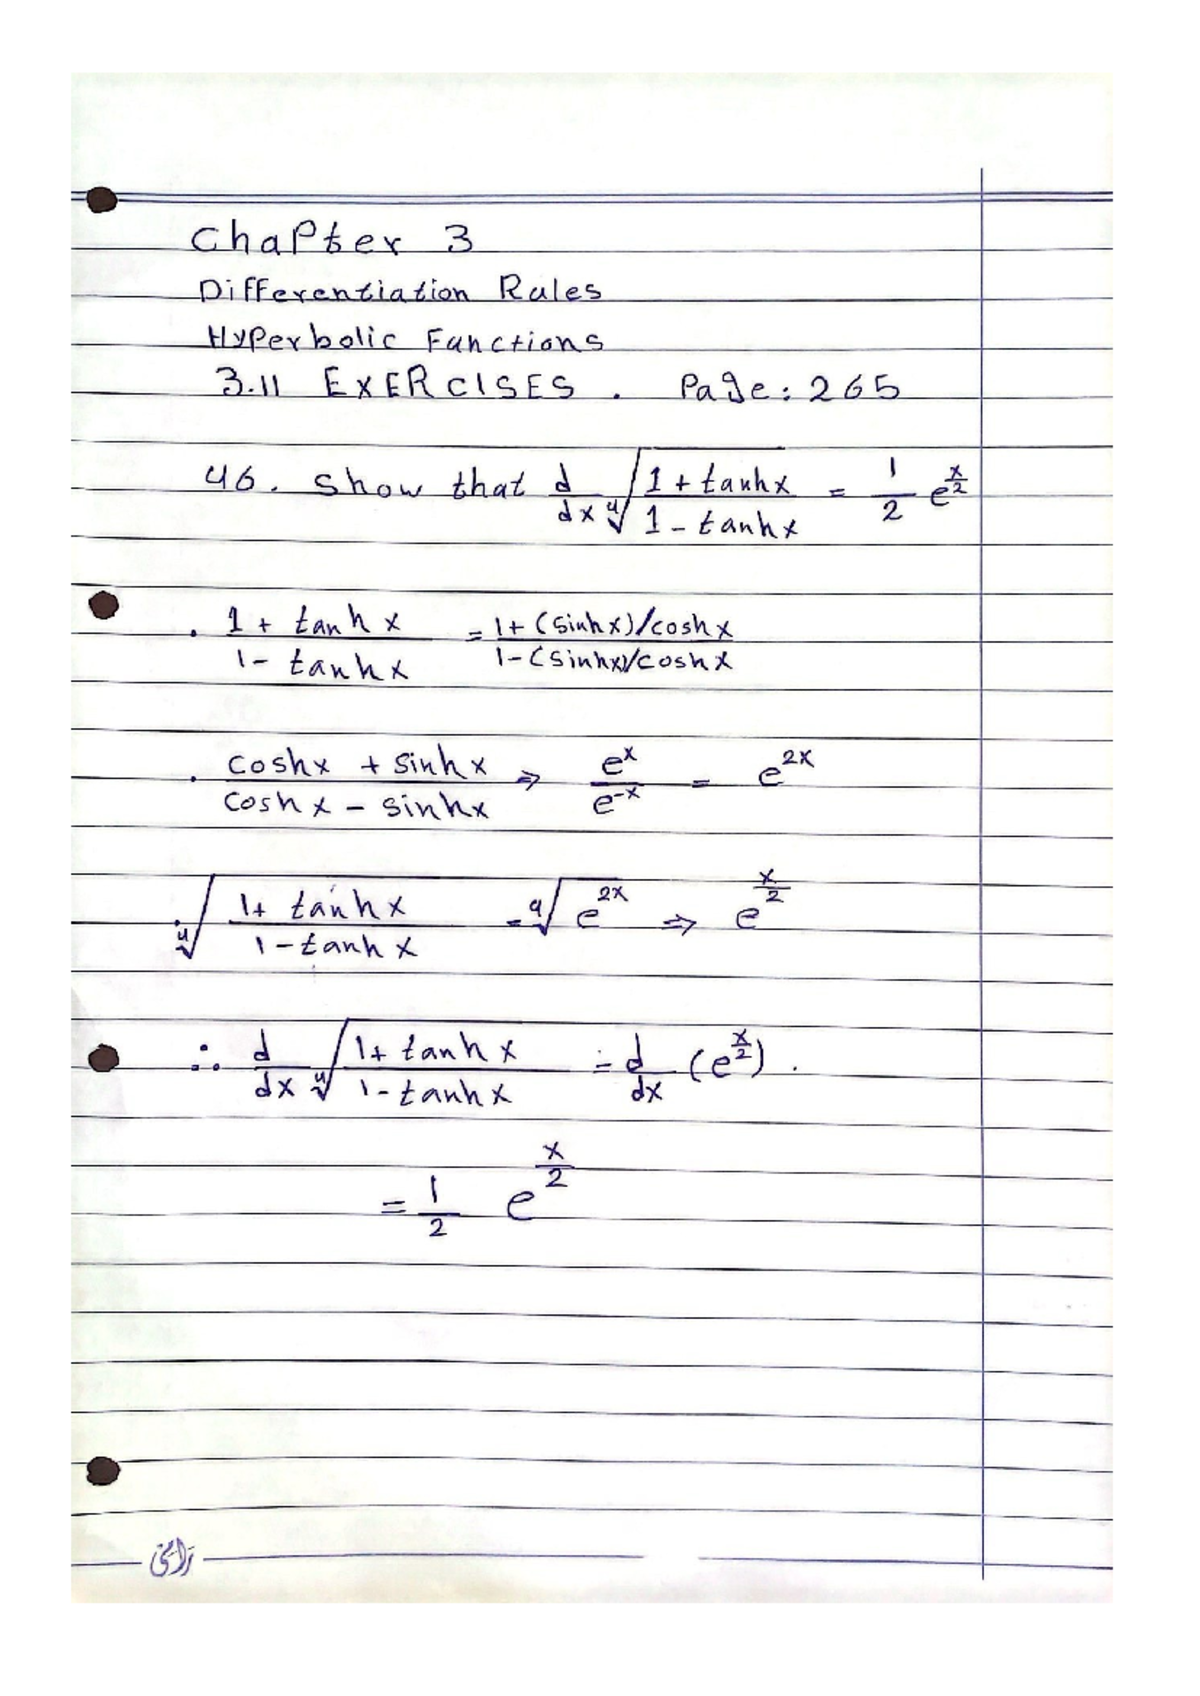 Chapter 3
Differentiation Rules
Hyperbolic Functions
3.11 EXERCISES . Page: 265
46. Show that d/dx ∜((1 + tanhx)/(1 - tanhx)) = 1/2 e^(x/2)
. (1 + tanh x)/(1 - tanhx) = (1+ (sinhx)/coshx)/(1-(sinhx)/coshx)
. (coshx + sinhx)/(coshx - sinhx) ⇒ e^x/e^-x = e^2x
∜((1+ tanhx)/(1-tanhx)) = ∜(e^2x) ⇒ e^(x/2)
∴ d/dx ∜((1+ tanhx)/(1-tanhx)) = d/dx (e^(x/2)) .
= 1/2 e^(x/2)